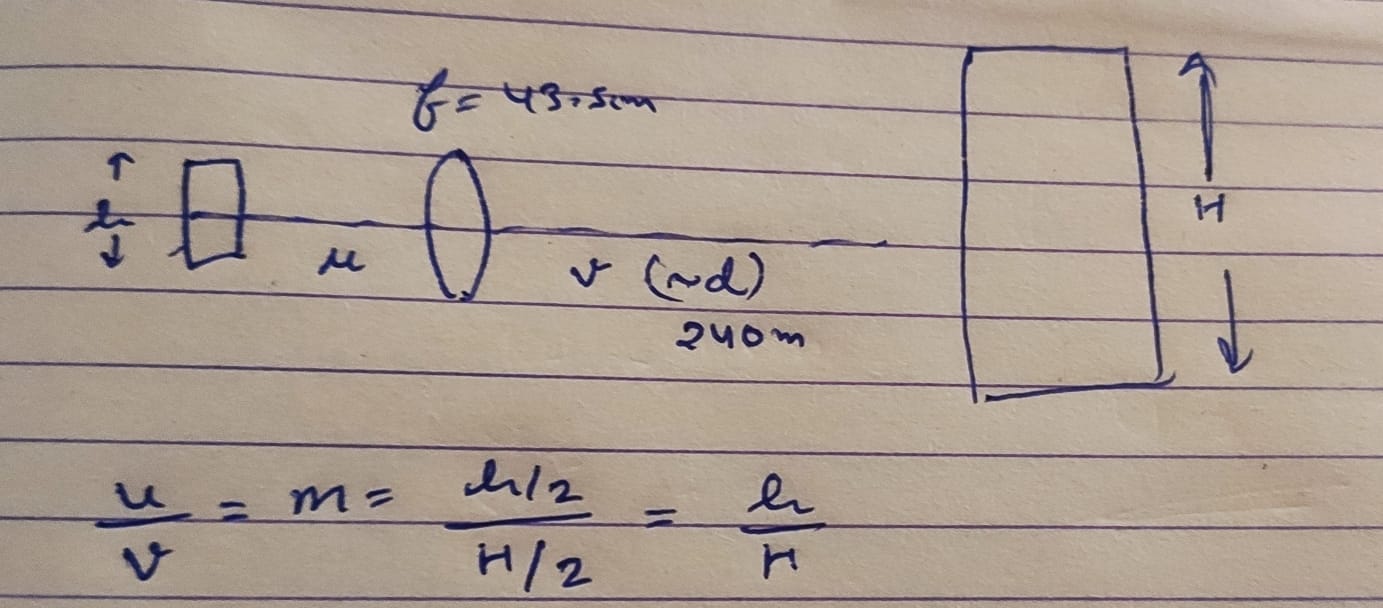 f = 43.5cm
h
H
u
v (~d)
240m
u/v = m = h/2 / H/2 = h/H